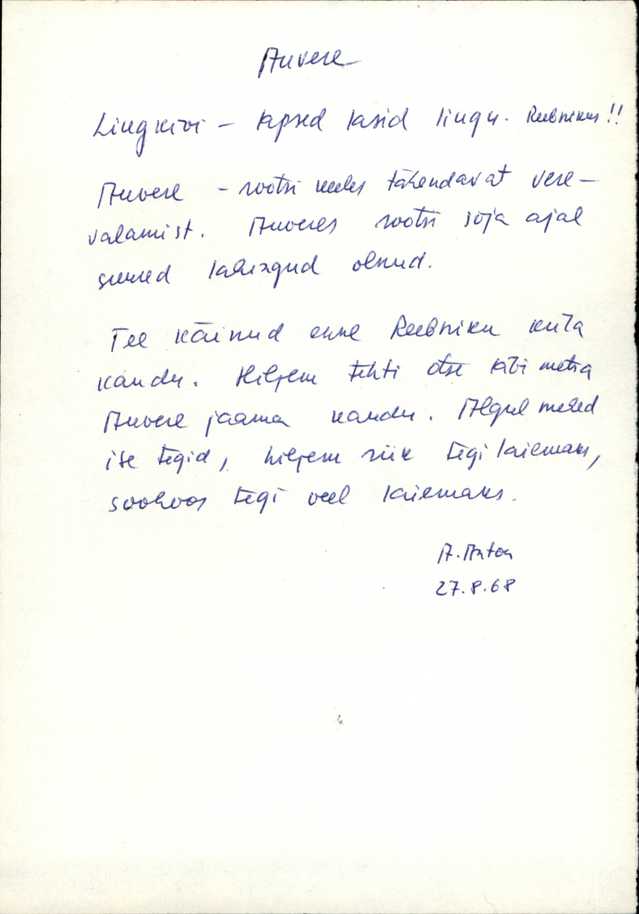 Auvere
Lingkivi – lapsed lasid lingu. Reebnikus!!
Auvere – rootsi keeles tähendavat vere–
valamist. Auveres rootsi sõja ajal
suured lahingud olnud.
Tee käinud enne Reebniku küla
kaudu. Hiljem tehti otse läbi metsa
Auvere jaama kaudu. Algul mehed
ise tegid, hiljem riik tegi laiemaks,
sovhoos tegi veel laiemaks.
A. Anton
27.8.68